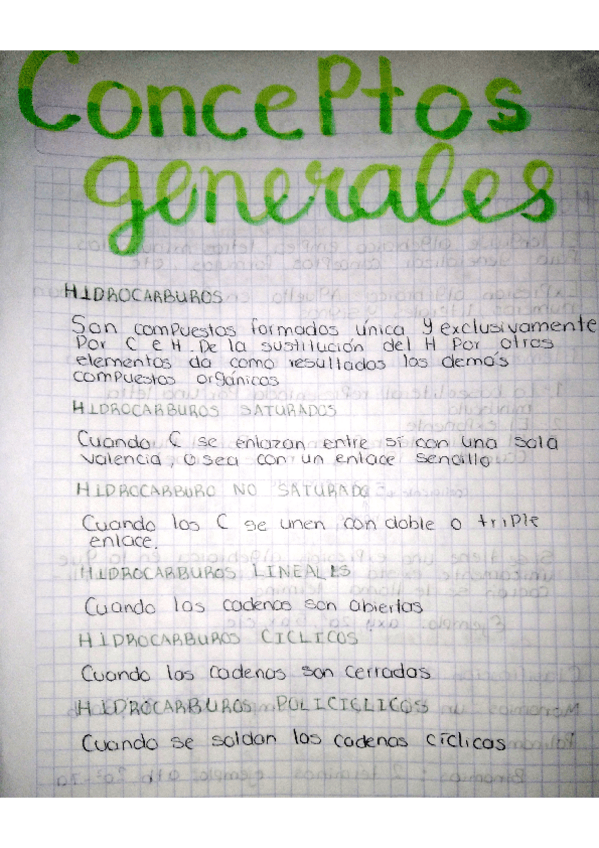 Conceptos
generales
HIDROCARBUROS
Son compuestos formados unica y exclusivamente
Por C e H. De la sustitución del H Por otros
elementos da como resultados los demós
compuestos orgánicos
HIDROCARBUROS SATURADOS
Cuando C se enlazan entre sí con una sola
valencia, o sea con un enlace sencillo
HIDROCARBURO NO SATURADO
Cuando los C se unen con doble o triple
enlace.
HIDROCARBUROS LINEALES
Cuando las cadenas son abiertas
HIDROCARBUROS CICLICOS
Cuando las cadenas son cerradas
HIDROCARBUROS POLICICLICOS
Cuando se soldan las cadenas cíclicas